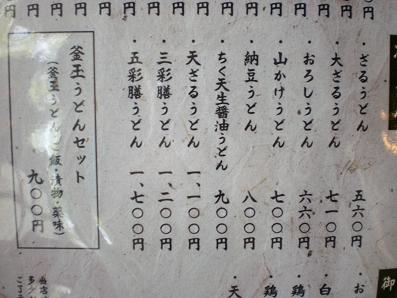 円 円 円 円 円 円 円 円 円 円 円
・ざるうどん 五六〇円
・大ざるうどん 七一〇円
・おろしうどん 六六〇円
・山かけうどん 七〇〇円
・納豆うどん 八〇〇円
ちく天生醤油うどん 九〇〇円
・天ざるうどん 一、一〇〇円
・三彩膳うどん 一、二〇〇円
・五彩膳うどん 一、七〇〇円
釜玉うどんセット
(釜玉うどん・ご飯・漬物・薬味)
九〇〇円
御
・お
・白
・鶏
鶏
・天
当店